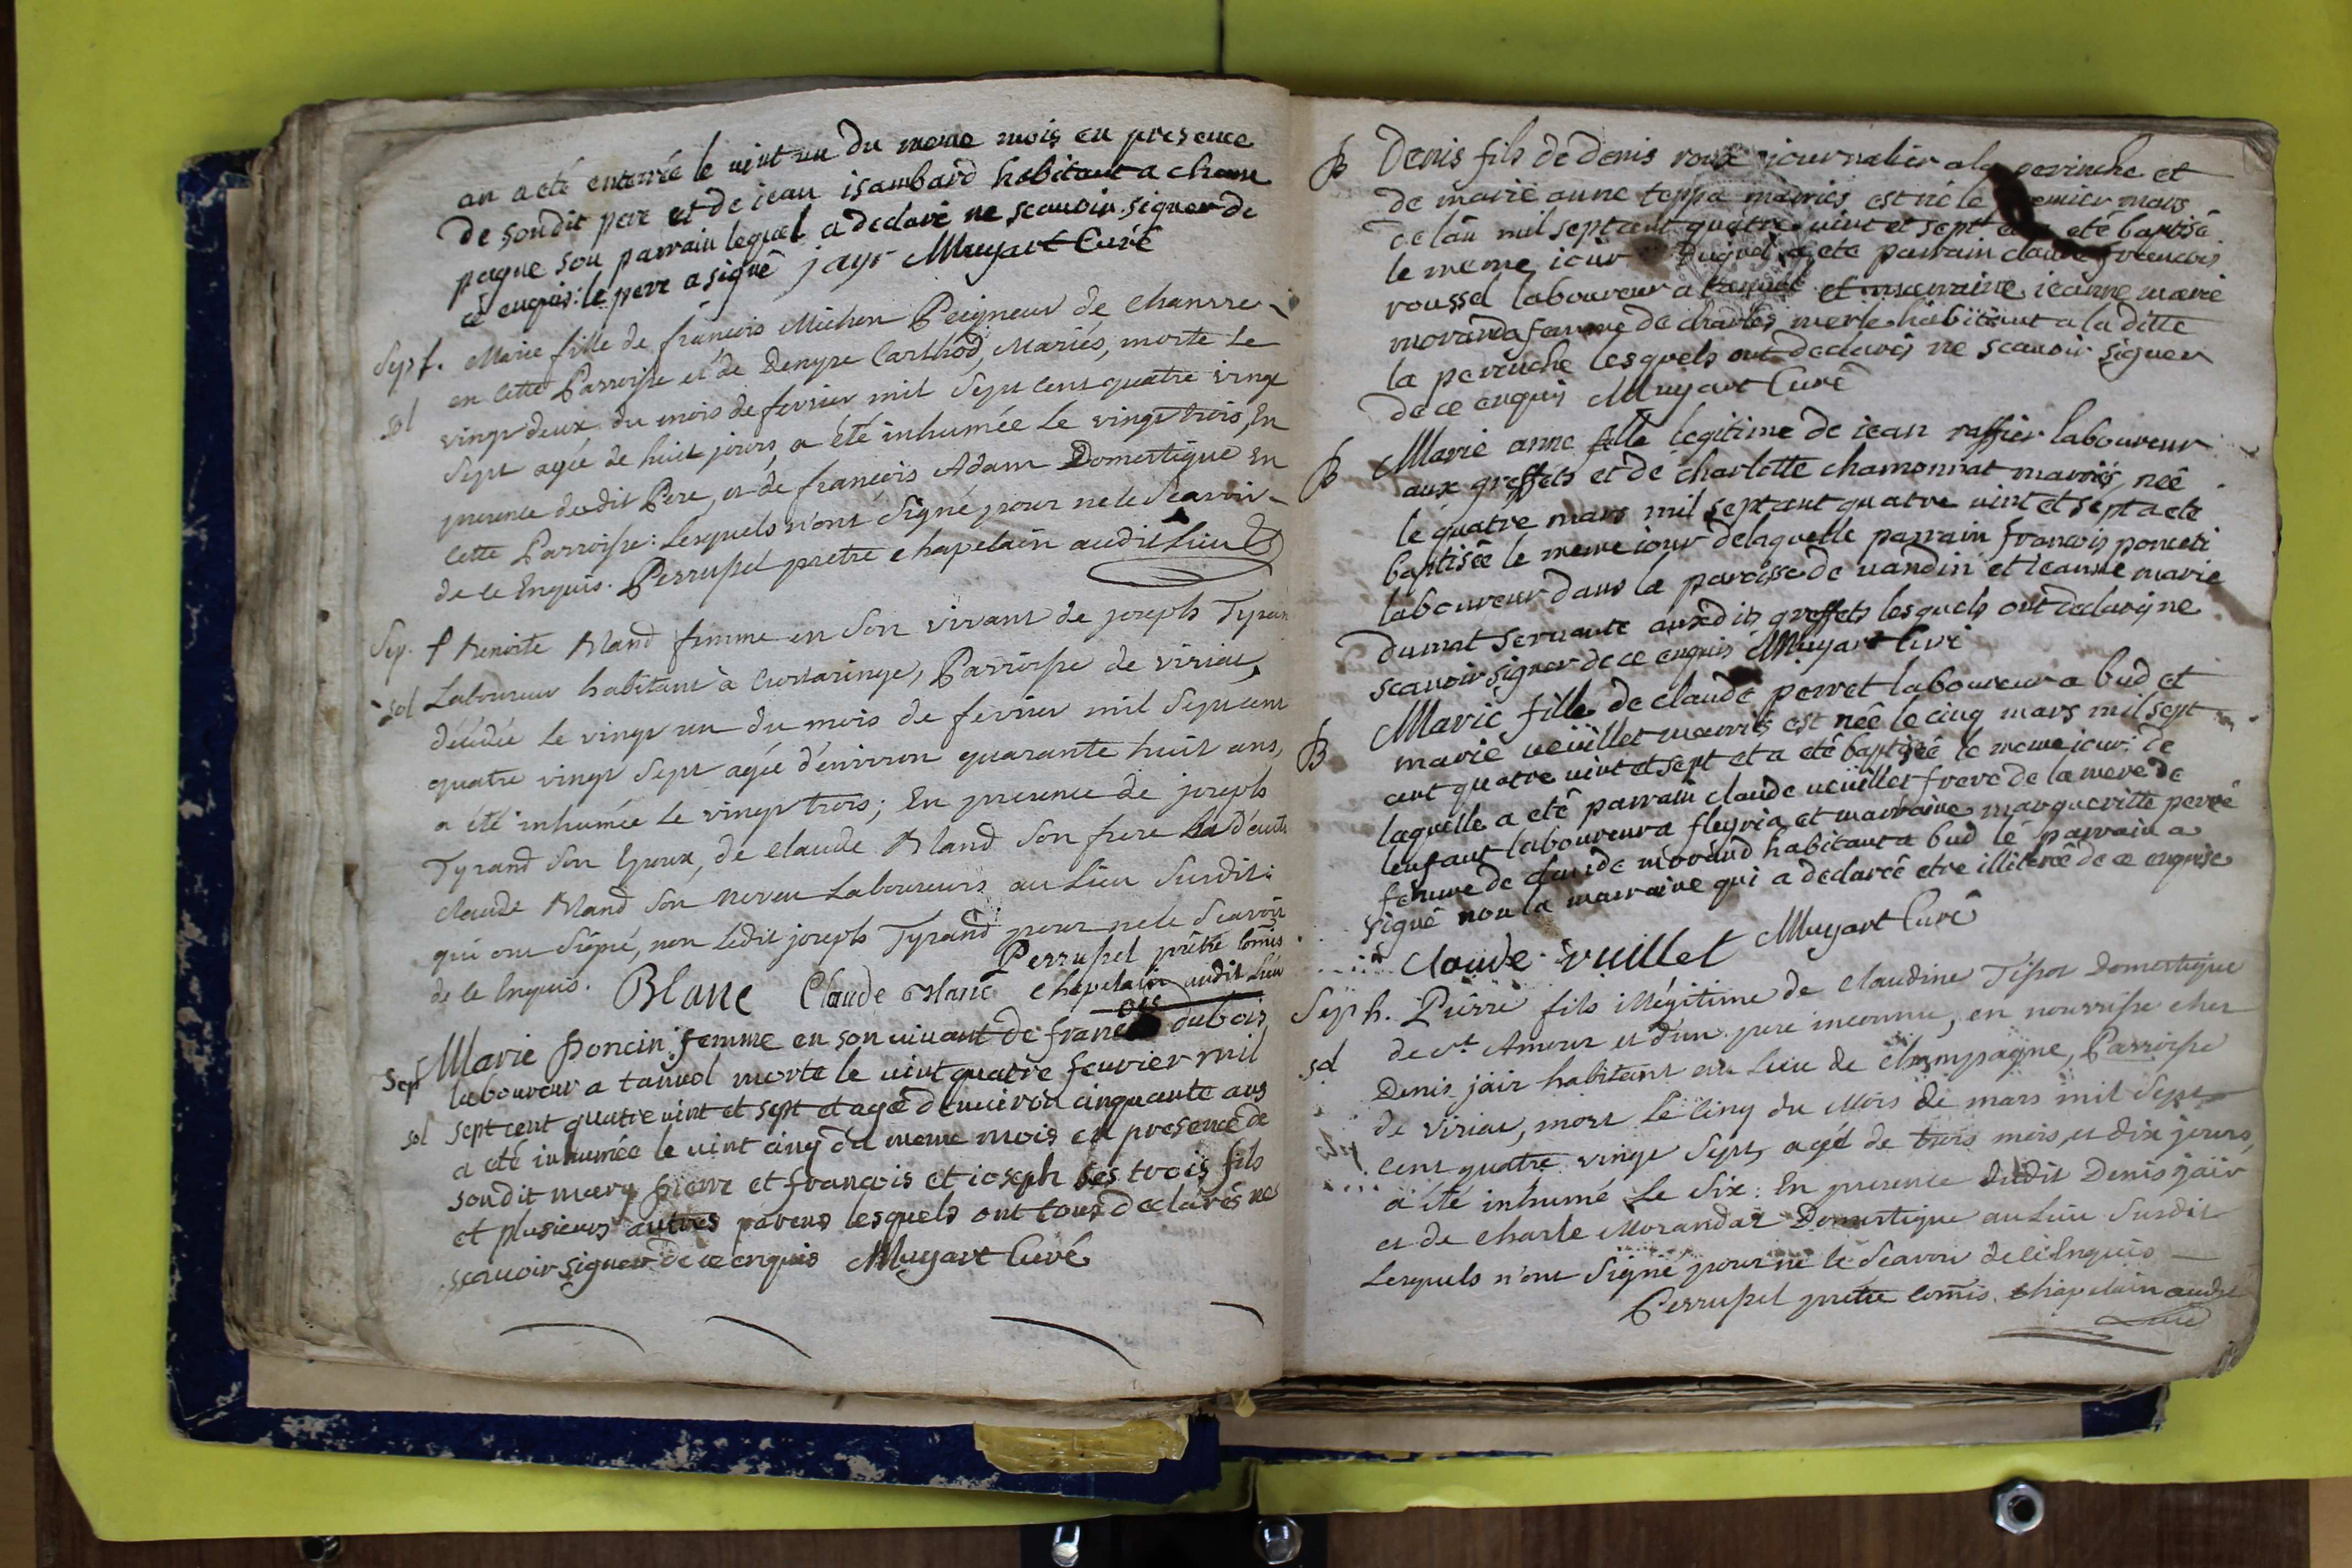 an a eté enterrée le vint un du meme mois en presence
de sondit pere et de jean isambard habitant a cham
pagne son parrain lequel a declaré ne scauoir signer de
cé enquis: le pere a signé jayr Muyart Curé
Sep f. Marie fille de francois Michon Peigneur de Chanvre
en cette Parroisse et de Denyse Carthod, Mariés, morte le
sol
vingt deux du mois de fevrier mil sept cent quatre vingt
sept agée de huit jours, a été inhumée le vingt trois, En
presence dudit Pere, et de francois Adam Domestique en
cette Parroisse: Lesquels n'ont signé pour ne le scavoir
de ce Enquis. Perrussel pretre chapelain audit Lieu
Sep. f Benoite Bland femme en son vivant de joseph Tyran
sol Laboureur habitant à , Parroisse de viriat,
décédée le vingt un du mois de fevrier mil sept cent
quatre vingt sept agée d'environ quarante huit ans,
a été inhumée le vingt trois; En presence de joseph
Tyrand son Epoux, de Claude Bland son frere
Claude Bland son neveu Laboureurs au Lieu susdit:
qui ont signé, non ledit joseph Tyrand pour ne le scavoir
de ce Enquis. Perrussel prêtre comis
Blanc Claude Blanc chapelain audit Lieu
Sepf Marie poncin femme en son uiuant de francois dubois
laboureur a tanuol morte le uint quatre feurier mil
sol sept cent quatre uint et sept et agé d'enuiron cinquante ans
a eté inhumée le uint cinq du meme mois en presence de
sondit mary pierre et francois et ioseph ses trois fils
et plusieurs autres parens lesquels ont tous declarés ne
scauoir signer de ce enquis Muyart Curé
B Denis fils de denis roux journalier a la peruiche et
de marie anne teppe mariés est né le premier mars
de l'an mil sept cent quatre uint et sept et a eté baptisé
le meme iour Duquel a eté parrain claude francois
roussel laboureur a tanuol et marraine ieanne marie
morand femme de charles merle habitant a la ditte
la peruiche lesquels ont declarés ne scauoir signer
de ce enquis Muyart Curé
B Marie anne fille legitime de iean raffier laboureur
aux greffets et de charlotte chamonnat mariés, née
le quatre mars mil sept cent quatre uint et sept a eté
baptisée le meme iour de laquelle parrain francois poncet
laboureur dans la paroisse de uandin et ieanne marie
dumat seruante auxdits greffets lesquels ont declaré ne
scauoir signer de ce enquis Muyart Curé
B Marie fille de claude perret laboureur a bud et
marie ueüillet mariés est née le cinq mars mil sept
cent quatre uint et sept et a eté baptisée le meme iour: de
laquelle a eté parrain claude ueüillet frere de la mere de
lenfant laboureur a fleyria et marraine margueritte perré
femme de claude morand habitant a bud le parrain a
signé non la marraine qui a declaréé etre illiterée de ce enquise
Claude vuillet Muyart Curé
Sep h. Pierre fils illégitime de Claudine Tissot Domestique
de St. Amour et d'un pere inconnu, en nourrisse chez
sol Denis jair habitant au Lieu de Champagne, Parroisse
de viriat, mort le cinq du Mois de mars mil sept
cent quatre vingt sept, agé de trois mois, et dix jours,
a été inhumé le six: En presence dudit Denis jair
et de Charle Morandat Domestique au Lieu susdit
Lesquels n'ont signé pour ne le scavoir de ce Enquis
Perrussel pretre comis chapelain audit
Lieu